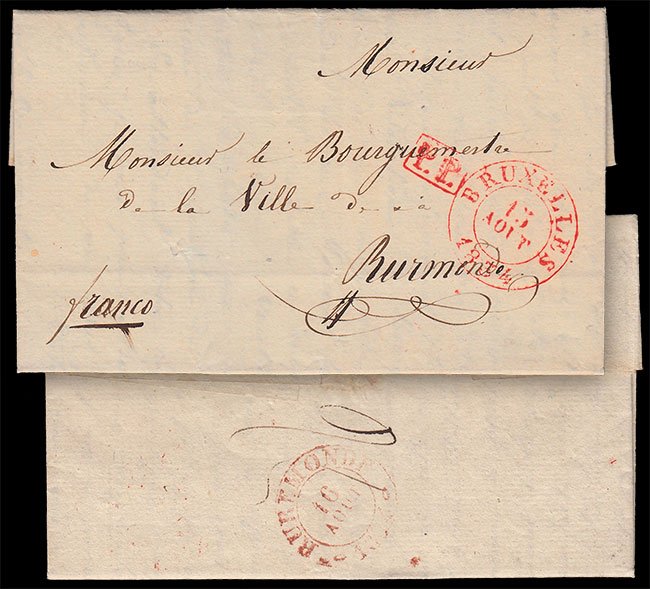 Monsieur
Monsieur le Bourguemestre
P.P.
de la Ville de et à
BRUXELLES
15
AOUT
Rurmonde
franco
RUREMONDE
16
AOUT